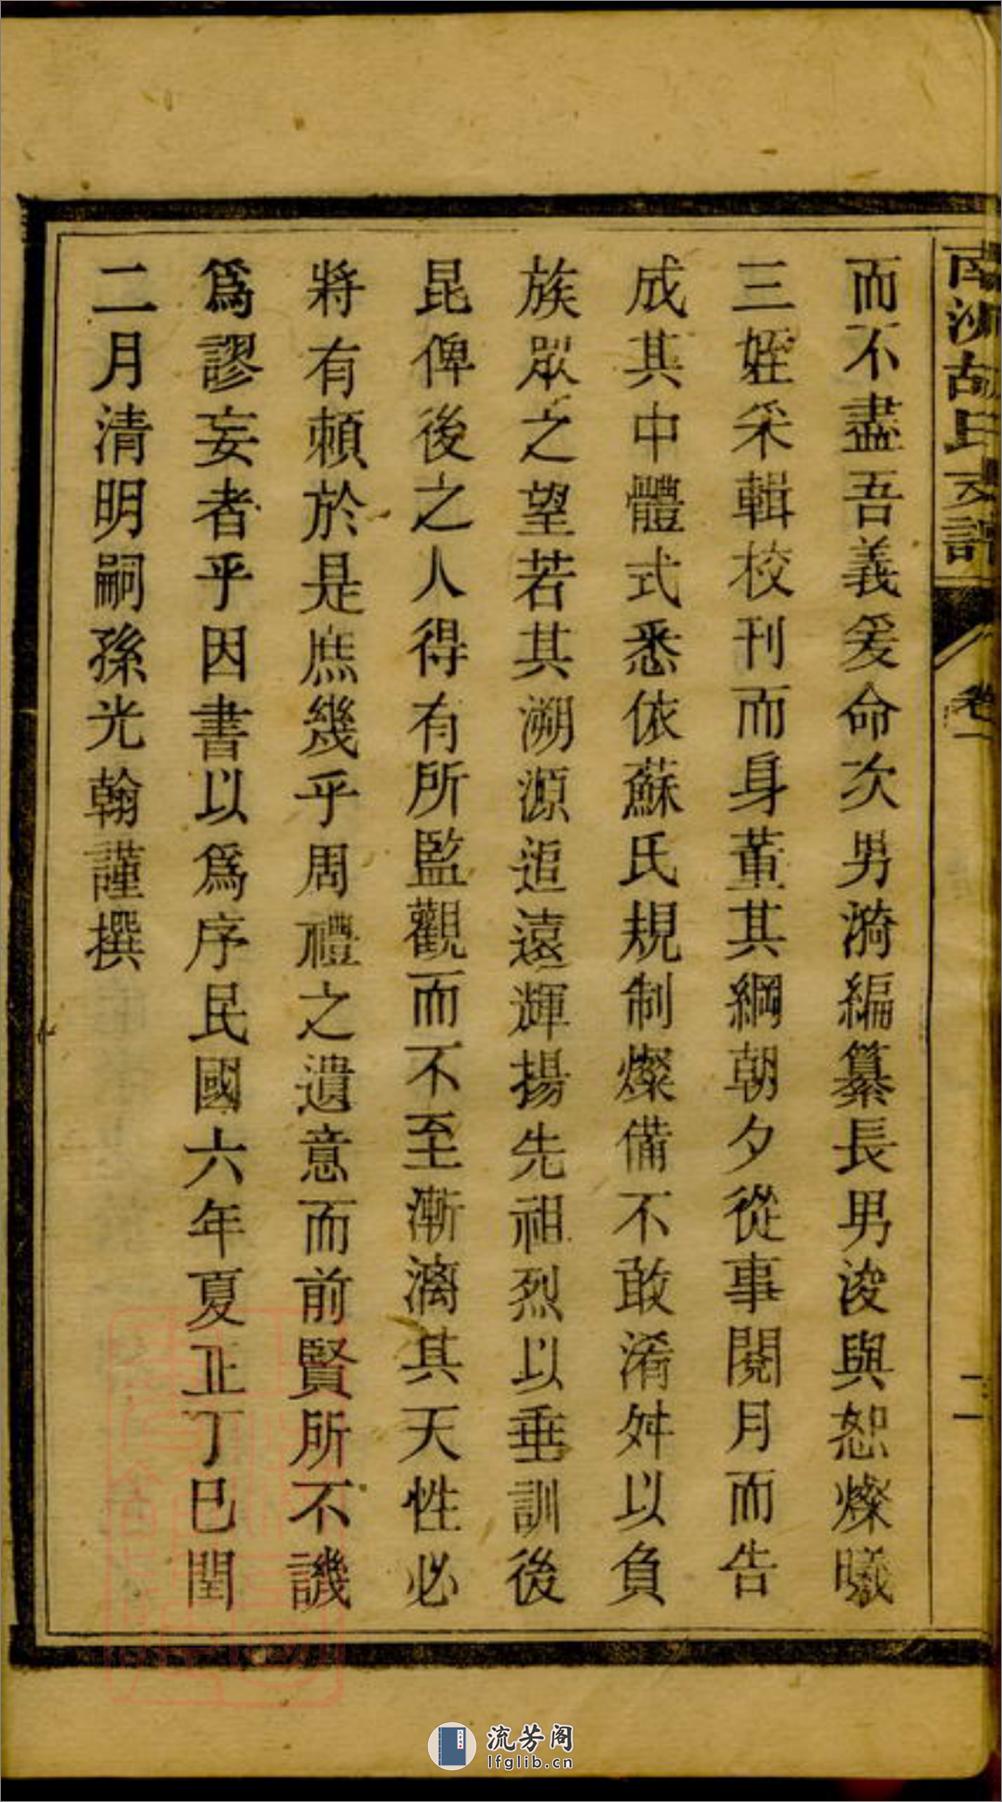 南沙胡氏支譜
卷一
二
而不盡吾義爰命次男漪編纂長男浚與恕燦曦
三姪采輯校刊而身董其綱朝夕從事閱月而告
成其中體式悉依蘇氏規制燦備不敢淆舛以負
族眾之望若其溯源追遠輝揚先祖烈以垂訓後
昆俾後之人得有所監觀而不至漸漓其天性必
將有賴於是庶幾乎周禮之遺意而前賢所不譏
為謬妄者乎因書以為序民國六年夏正丁巳閏
二月清明嗣孫光翰謹撰
流芳阁
lfglib.cn